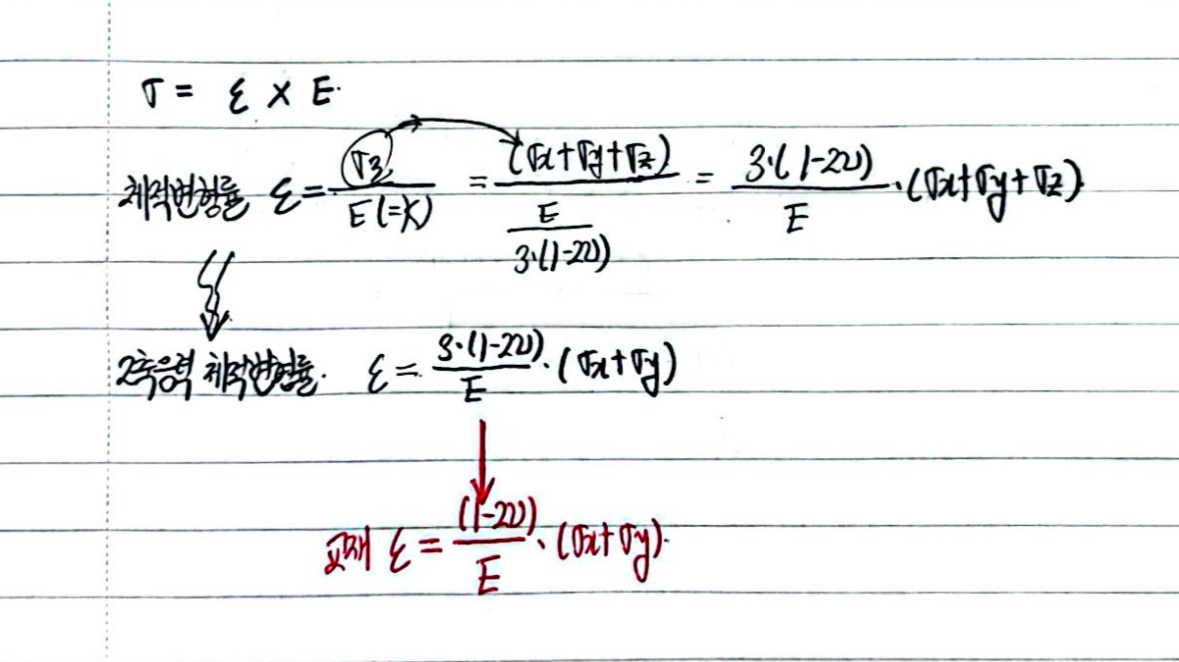 σ = ε × E.
체적변형률 ε = σ3 / E(=K) = (σx+σy+σz) / (E / 3·(1-2ν)) = 3·(1-2ν) / E · (σx+σy+σz)
2축응력 체적변형률. ε = 3·(1-2ν) / E · (σx+σy)
교재 ε = (1-2ν) / E · (σx+σy).